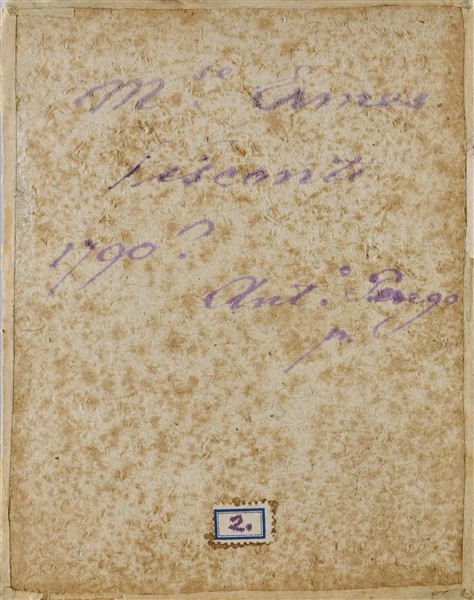 M.se Ermes
Visconti
1790?
Ant.o
p.
2.